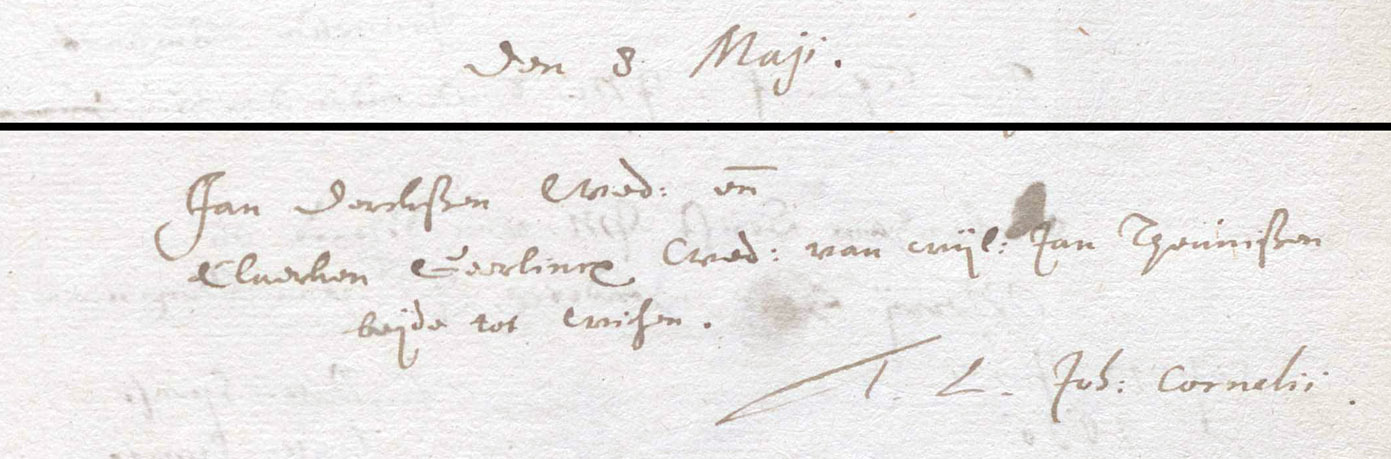 Den 8 Maji.
Jan Dercksſen Wed: en̄
Claerken Geerlincx Wed: van wijl: Jan Theunisſen
beijde tot Wichen.
T. L. Joh: Cornelii.